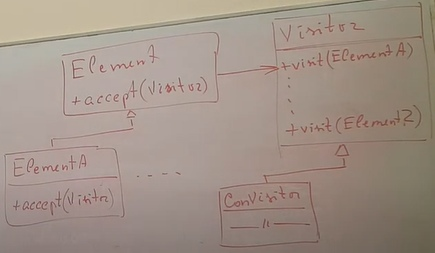 Visitor
Element
+accept(Visitor)
+visit(ElementA)
+visit(ElementZ)
ElementA
+accept(Visitor)
ConVisitor
—"—